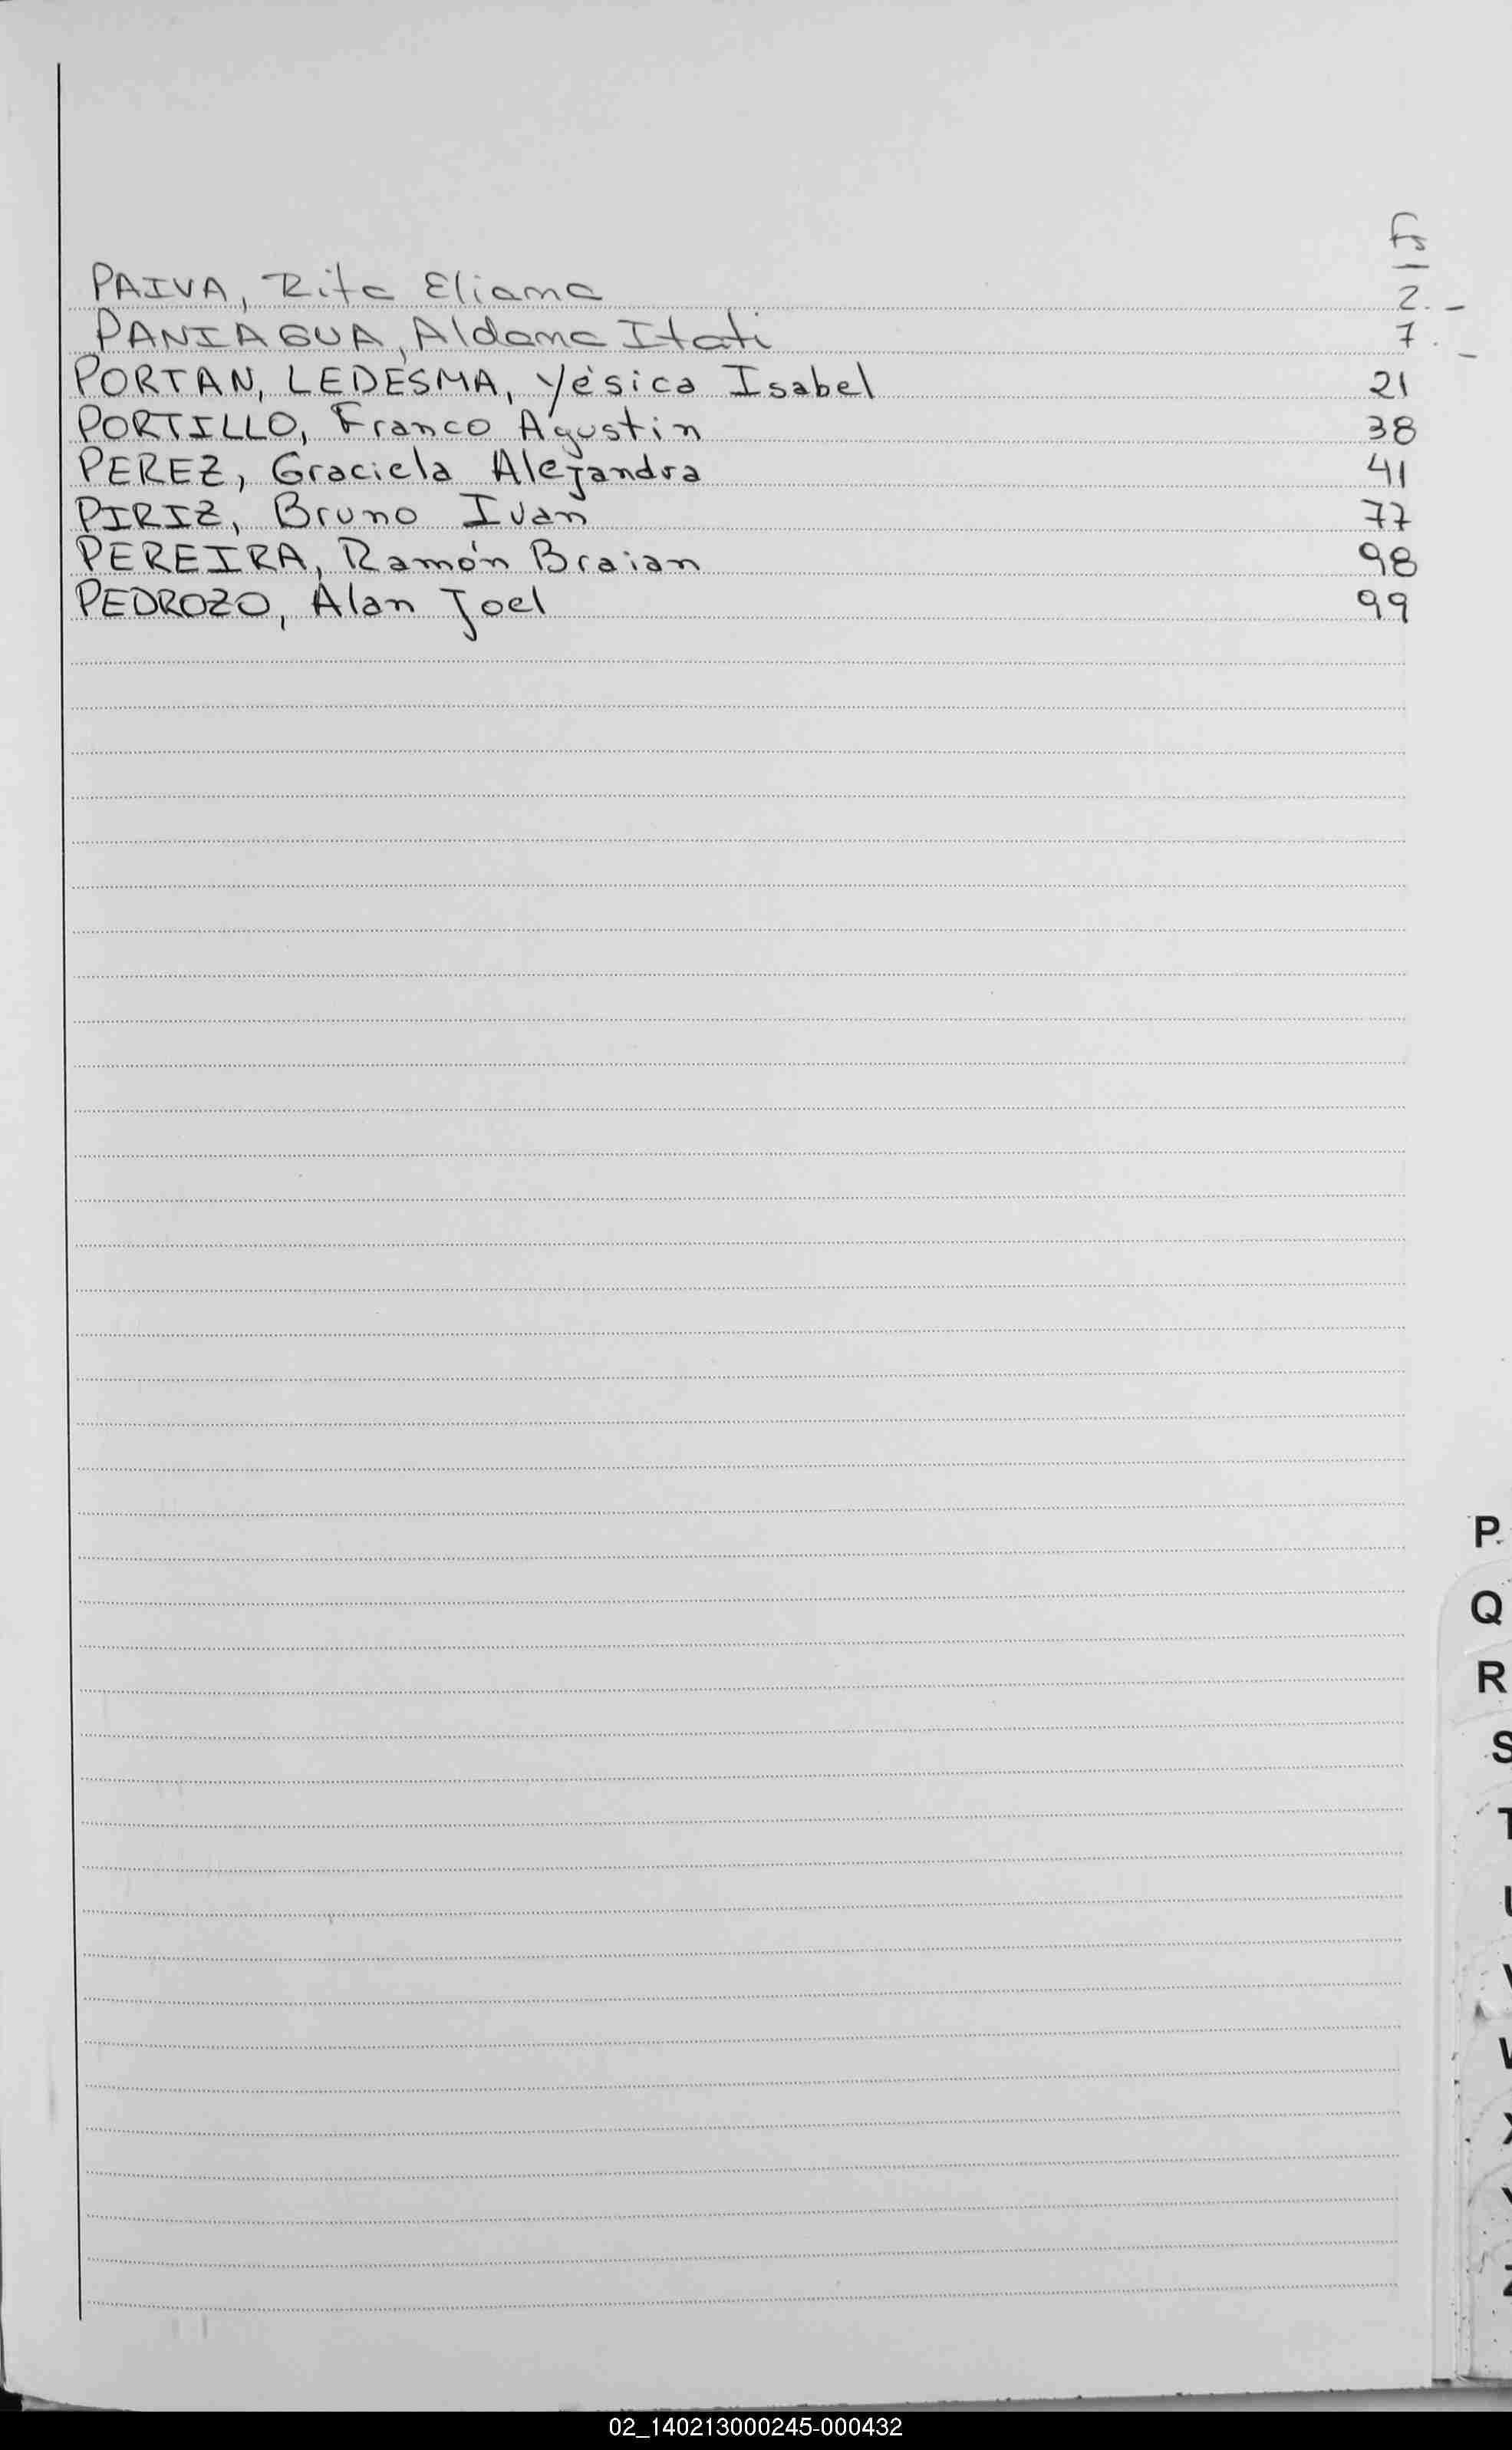 Fs
PAIVA, Rita Eliana 2.-
PANIAGUA, Aldana Itati 7.-
PORTAN, LEDESMA, Yésica Isabel 21
PORTILLO, Franco Agustin 38
PEREZ, Graciela Alejandra 41
PIRIZ, Bruno Ivan 77
PEREIRA, Ramón Braian 98
PEDROZO, Alan Joel 99
P
Q
R
S
T
U
V
W
X
Y
Z
02_140213000245-000432